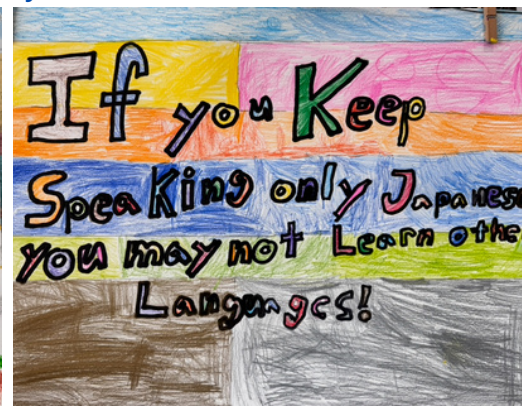 If you Keep
Speaking only Japanese
you may not Learn othe
Languages!